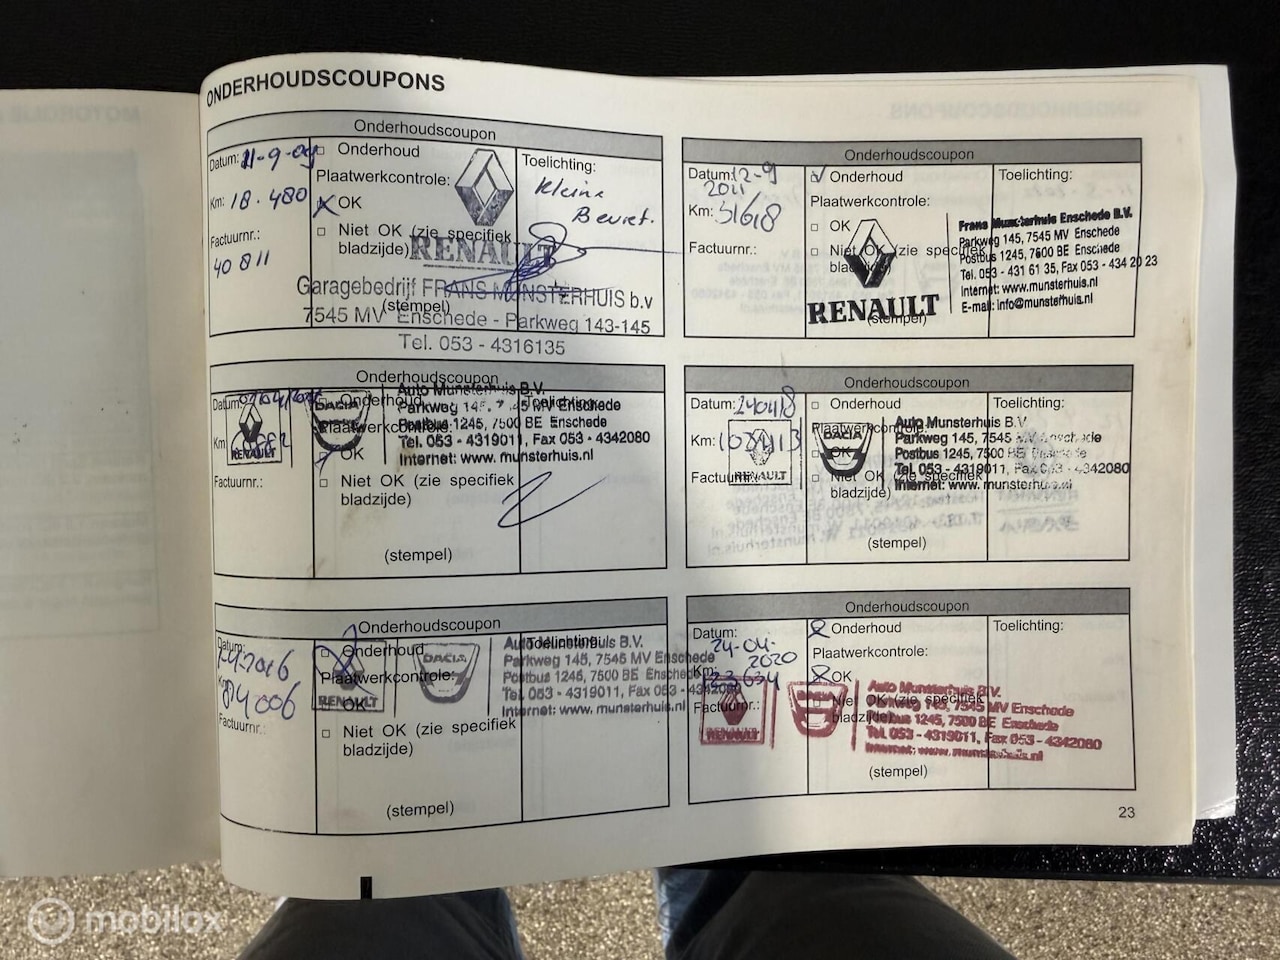 ONDERHOUDSCOUPONS
Onderhoudscoupon
Datum: 11-9-09
Km: 18.480
Factuurnr.:
40811
Onderhoud
Plaatwerkcontrole:
OK
Niet OK (zie specifiek
bladzijde)
(stempel)
Toelichting:
Kleine
RENAULT
Garagebedrijf FRANS MUNSTERHUIS b.v
7545 MV Enschede - Parkweg 143-145
Tel. 053 - 4316135
Onderhoudscoupon
Datum: 12-9
2011
Km: 51618
Factuurnr.:
Onderhoud
Plaatwerkcontrole:
OK
Niet OK (zie specifiek
bladzijde)
(stempel)
Toelichting:
RENAULT
Frans Munsterhuis Enschede B.V.
Parkweg 145, 7545 MV Enschede
Postbus 1245, 7500 BE Enschede
Tel. 053 - 431 61 35, Fax 053 - 434 20 23
Internet: www.munsterhuis.nl
E-mail: info@munsterhuis.nl
Onderhoudscoupon
Datum:
Km:
Factuurnr.:
Onderhoud
Plaatwerkcontrole:
OK
Niet OK (zie specifiek
bladzijde)
(stempel)
Toelichting:
RENAULT
DACIA
Auto Munsterhuis B.V.
Parkweg 145, 7545 MV Enschede
Postbus 1245, 7500 BE Enschede
Tel. 053 - 4319011, Fax 053 - 4342080
Internet: www.munsterhuis.nl
Onderhoudscoupon
Datum: 240418
Km: 103413
Factuurnr.:
Onderhoud
Plaatwerkcontrole:
OK
Niet OK (zie specifiek
bladzijde)
(stempel)
Toelichting:
RENAULT
DACIA
Auto Munsterhuis B.V.
Parkweg 145, 7545 MV Enschede
Postbus 1245, 7500 BE Enschede
Tel. 053 - 4319011, Fax 053 - 4342080
Internet: www.munsterhuis.nl
Onderhoudscoupon
Datum:
Km: 84006
Factuurnr.:
Onderhoud
Plaatwerkcontrole:
OK
Niet OK (zie specifiek
bladzijde)
(stempel)
Toelichting:
RENAULT
DACIA
Auto Munsterhuis B.V.
Parkweg 145, 7545 MV Enschede
Postbus 1245, 7500 BE Enschede
Tel. 053 - 4319011, Fax 053 - 4342080
Internet: www.munsterhuis.nl
Onderhoudscoupon
Datum:
24-04-
2020
Km: 123634
Factuurnr.:
Onderhoud
Plaatwerkcontrole:
OK
Niet OK (zie specifiek
bladzijde)
(stempel)
Toelichting:
RENAULT
DACIA
Auto Munsterhuis B.V.
Parkweg 145, 7545 MV Enschede
Postbus 1245, 7500 BE Enschede
Tel. 053 - 4319011, Fax 053 - 4342080
Internet: www.munsterhuis.nl
23
mobilox